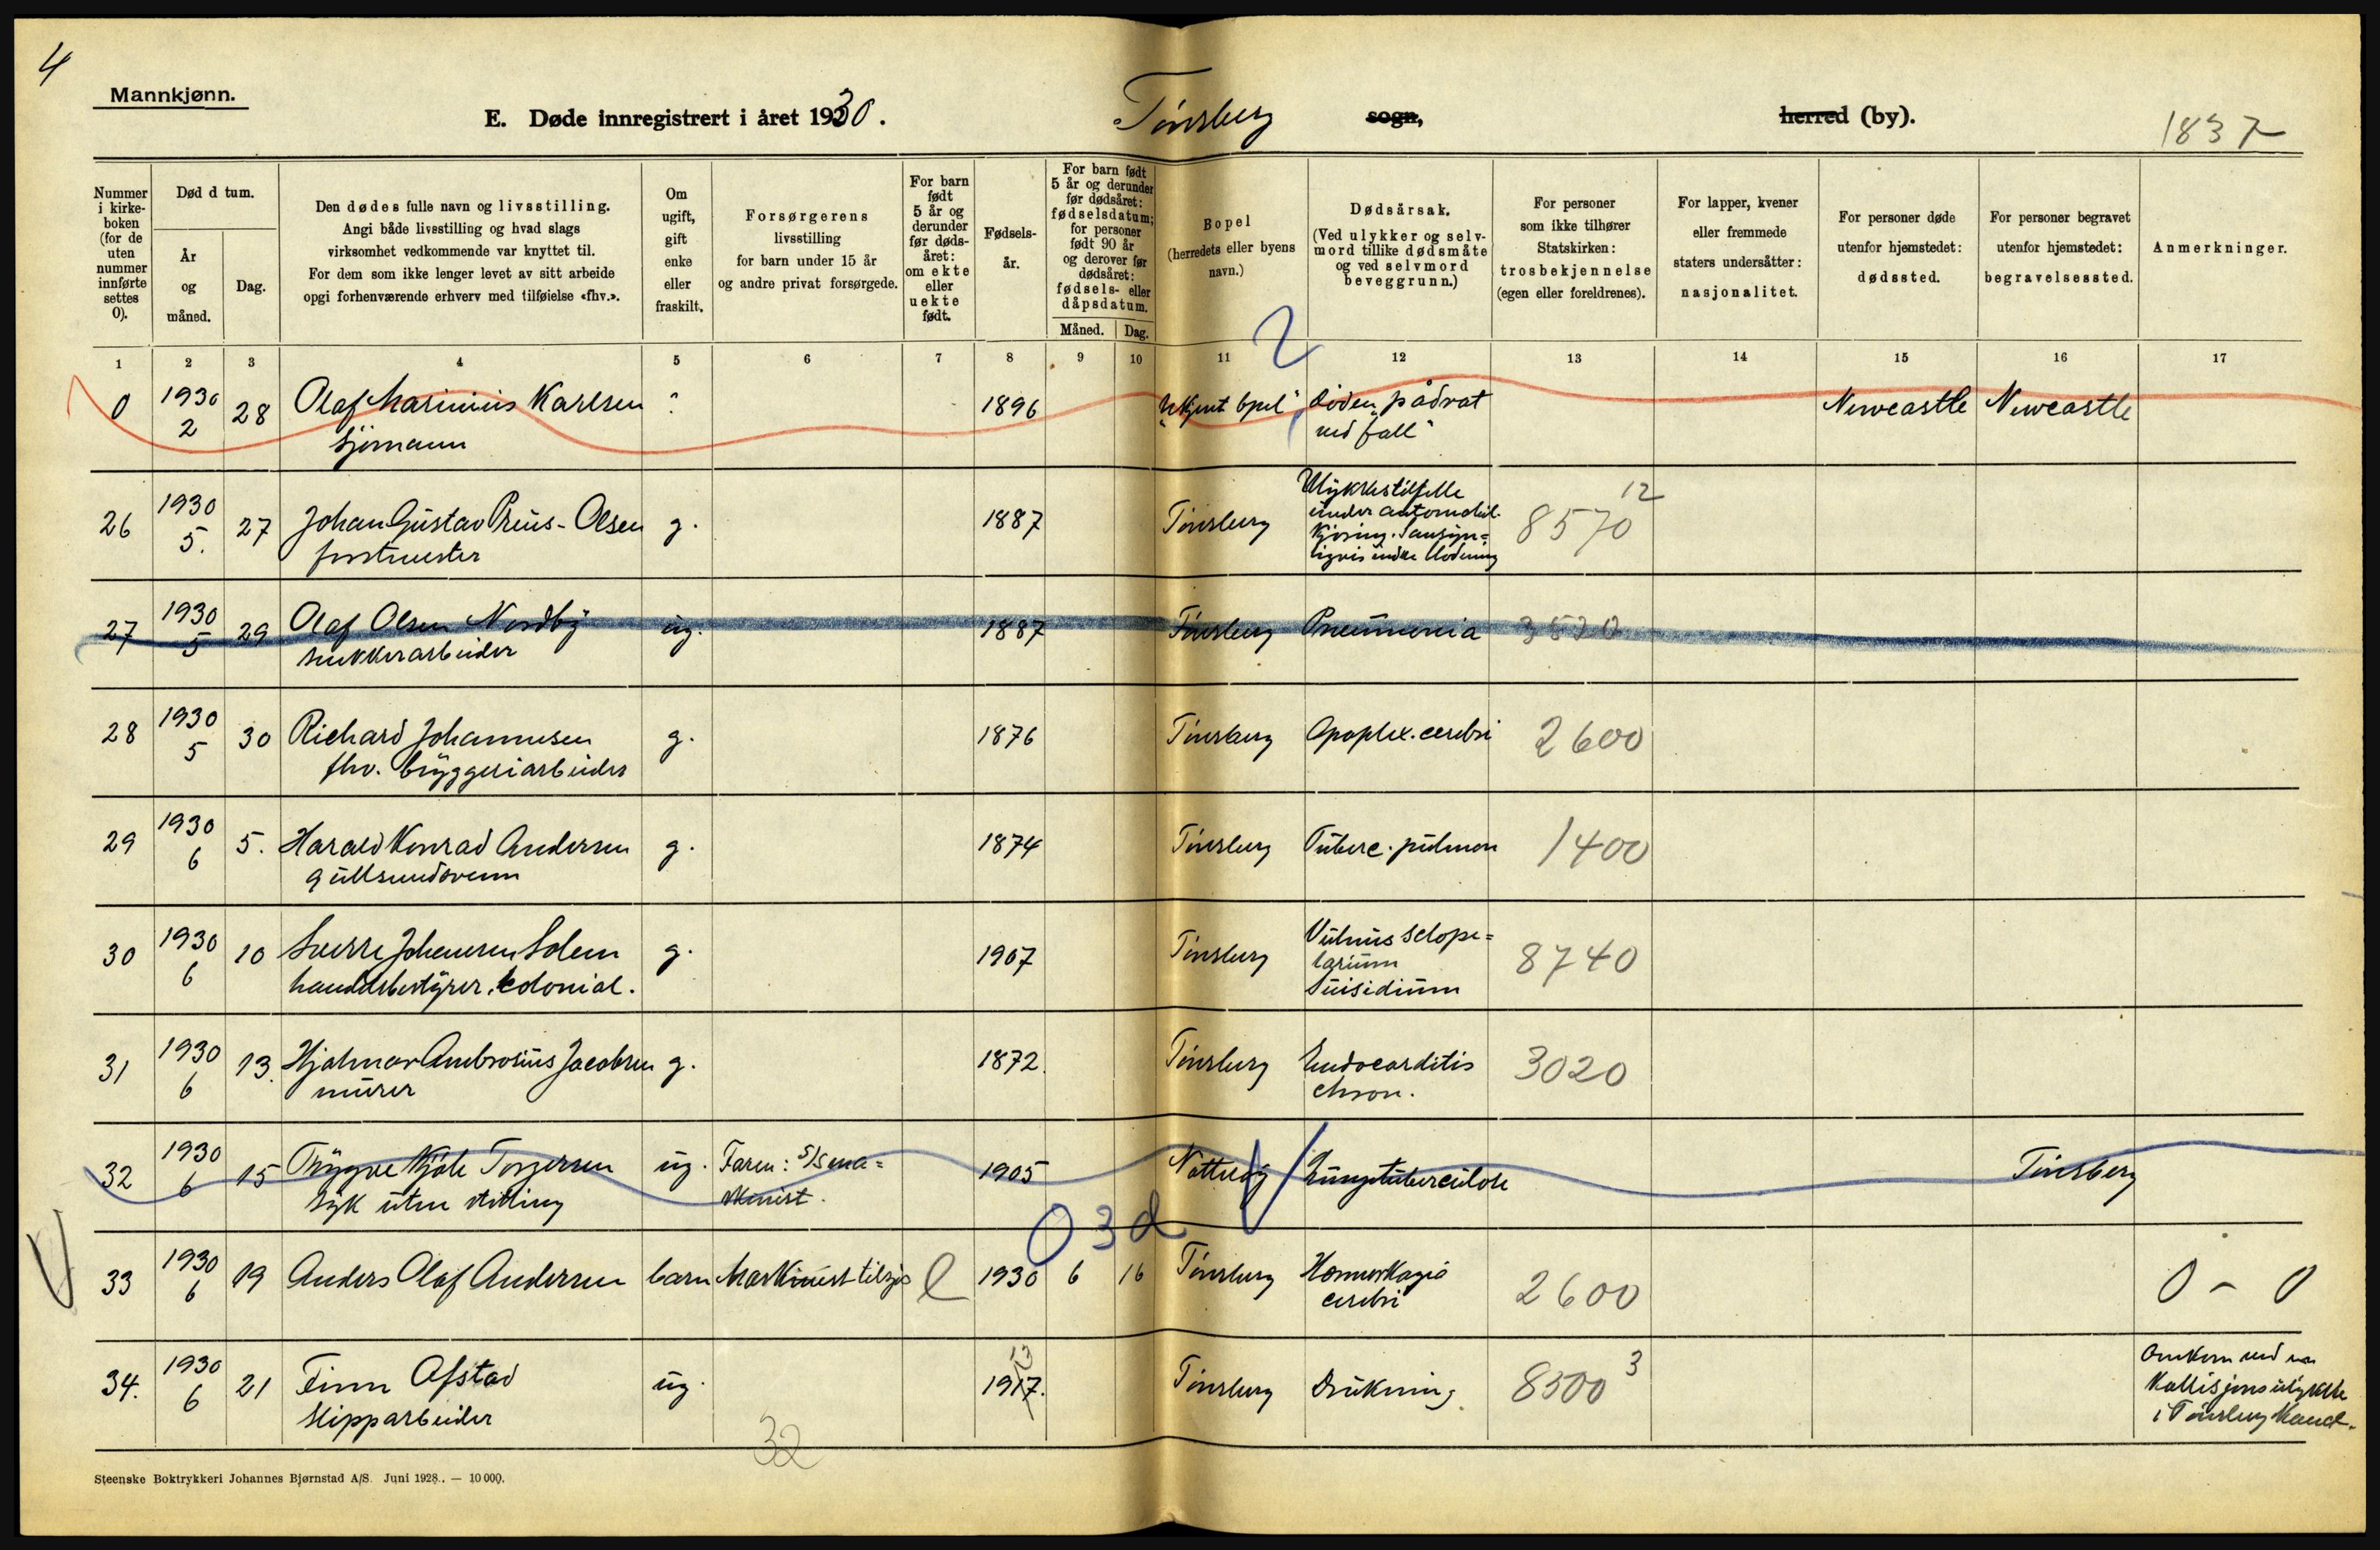 4
Mannkjønn.
E. Døde innregistrert i året 1930.
Tønsberg sogn, herred (by).
1837
Nummer i kirke-boken (for de uten nummer innførte settes 0).
Død d tum.
År og måned.
Dag.
Den dødes fulle navn og livsstilling.
Angi både livsstilling og hvad slags
virksomhet vedkommende var knyttet til.
For dem som ikke lenger levet av sitt arbeide
opgi forhenværende erhverv med tilføielse «fhv.».
Om ugift, gift enke eller fraskilt.
Forsørgerens
livsstilling
for barn under 15 år
og andre privat forsørgede.
For barn født 5 år og derunder før døds-året: om ekte eller uekte født.
Fødsels-år.
For barn født 5 år og derunder før dødsåret: fødselsdatum; for personer født 90 år og derover før dødsåret: fødsels- eller dåpsdatum.
Måned.
Dag.
Bopel
(herredets eller byens navn.)
Dødsårsak.
(Ved ulykker og selv-mord tillike dødsmåte og ved selvmord beveggrunn.)
For personer som ikke tilhører Statskirken: trosbekjennelse (egen eller foreldrenes).
For lapper, kvener eller fremmede staters undersåtter: nasjonalitet.
For personer døde utenfor hjemstedet: dødssted.
For personer begravet utenfor hjemstedet: begravelsessted.
Anmerkninger.
1 2 3 4 5 6 7 8 9 10 11 12 13 14 15 16 17
2
0 1930 2 28 Olaf Marinius Karlsen ? 1896 "Ukjent bpel" døden "pådrat Newcastle Newcastle
sjømann ved fall"
26 1930 5. 27 Johan Gustav Preus-Olsen g. 1887 Tønsberg Ulykkestilfelle 12
forstmester under automobil-
kjøring. Sansyn= 8570
ligvis indre blødning
27 1930 5 29 Olaf Olsen Nordby ug. 1887 Tønsberg Pneumonia 3520
sukkerarbeider
28 1930 5 30 Richard Johannesen g. 1876 Tønsberg Apoplex. cerebri 2600
fhv. bryggeriarbeider
29 1930 6 5. Harald Konrad Andersen g. 1874 Tønsberg Tuberc. pulmon 1400
gullsmedsvenn
30 1930 6 10 Sverre Johansen Solem g. 1907 Tønsberg Vulnus sclope= 8740
handelsbestyrer, kolonial. tarium
Suisidium
31 1930 6 13. Hjalmar Ambrosius Jacobsen g. 1872. Tønsberg Endocarditis 3020
murer chron.
32 1930 6 15 Trygve Kjøle Torgersen ug. Faren: S/S ma= 1905 Nøtterøy Lungetuberculose Tønsberg
syk uten stilling skinist.
0 3 d
33 1930 6 19 Anders Olaf Andersen barn Maskinist tilsjøs e 1930 6 16 Tønsberg Hæmorhagia 2600 0 - 0
cerebri
34. 1930 6 21 Finn Afstad ug. 1917. 13 Tønsberg Drukning. 8500 3 Omkom ved
slipparbeider kollisjonsulykke
i Tønsberg Kanal.
32
Steenske Boktrykkeri Johannes Bjørnstad A/S. Juni 1928. — 10 000.